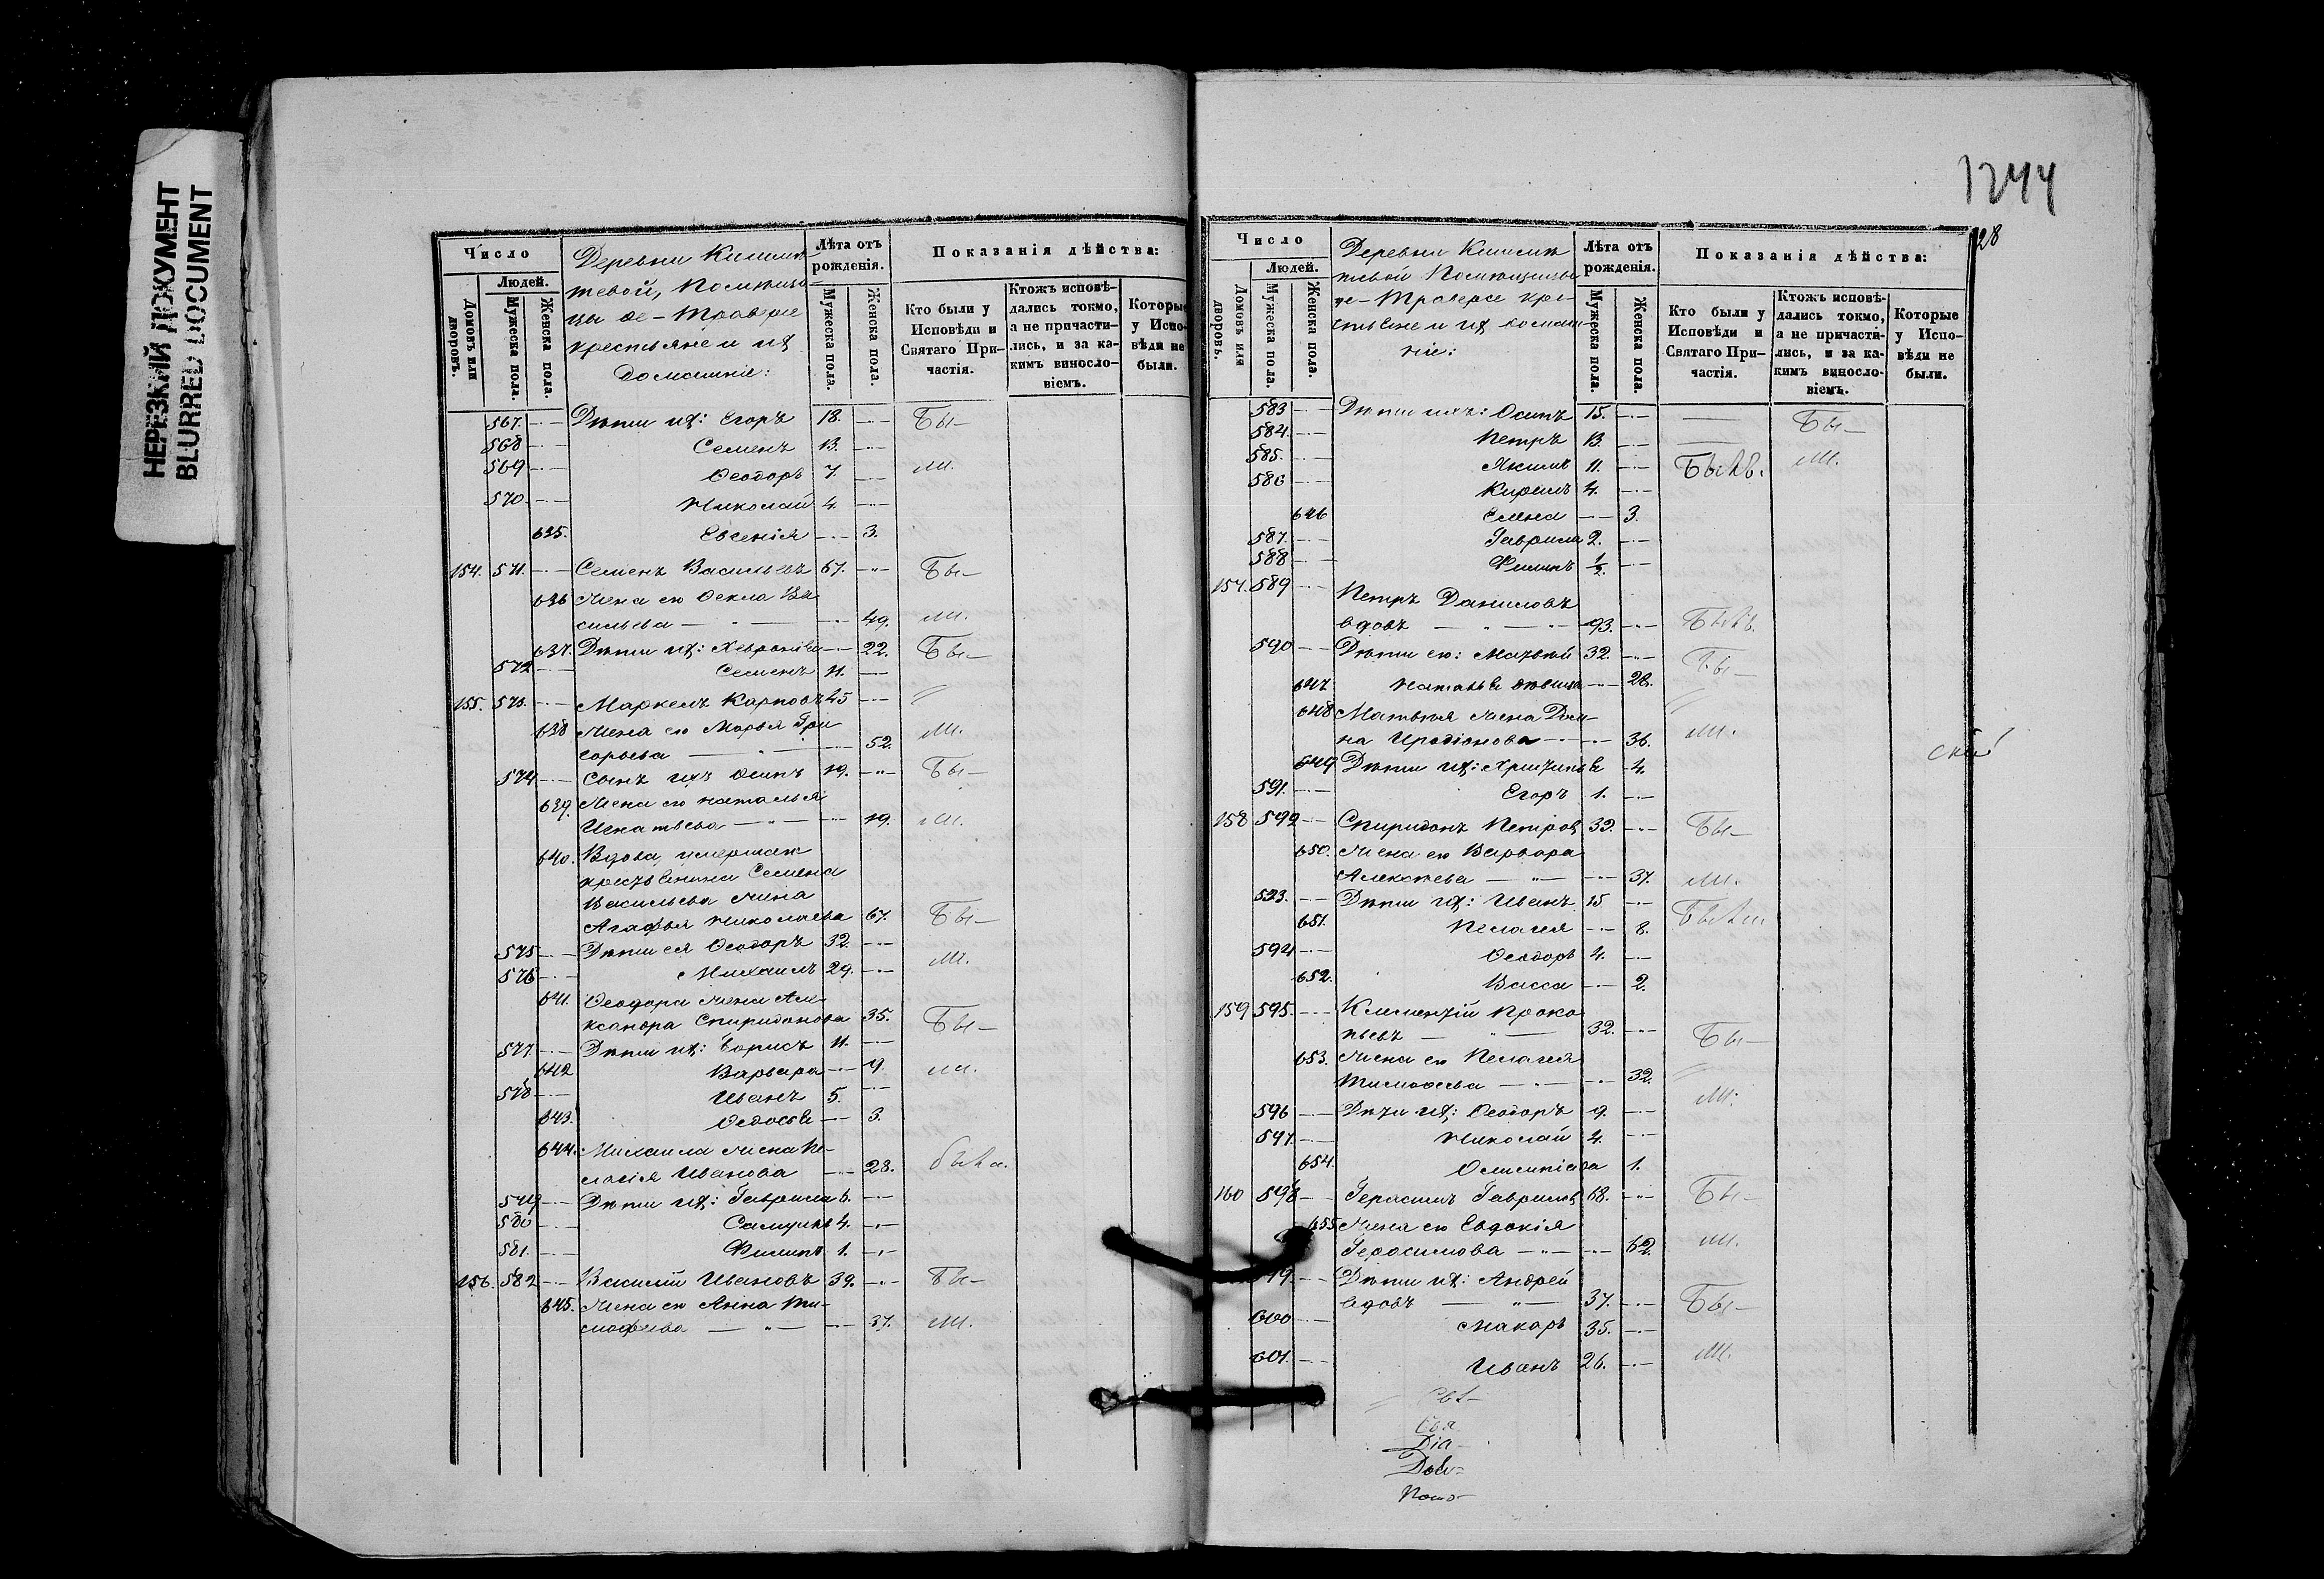 НЕРЕЗКИЙ ДОКУМЕНТ
BLURRED DOCUMENT
Число
Людей.
Домовъ или дворовъ.
Мужеска пола.
Женска пола.
Деревни
крестьяне и их
Домашніе:
Лѣта отъ рожденія.
Мужеска пола.
Женска пола.
Показанія дѣйства:
Кто были у Исповѣди и Святаго Причастія.
Ктожъ исповѣдались токмо, а не причастились, и за какимъ винословіемъ.
Которые у Исповѣди не были.
567. Дѣти их: Егоръ 18. Бы-
568 Семенъ 13.
569 Ѳеодоръ 7. ли.
570. Николай 4.
635. Евгенія 3.
154. 571. Семенъ Васильевъ 67. Бы-
636 Жена его Ѳекла Ва
сильева 49. ли.
637. Дѣти их: 22. Бы-
572 Семенъ 11.
155. 573. Маркелъ Карповъ 45
638 Жена его Марья Гри
горьева 52. ли.
574 Сынъ ихъ Осипъ 19. Бы-
639. Жена его Наталья
Игнатьева 19. ли.
640. Вдова умершаго
крестьянина Семена
Васильева жена
Агафья Николаева 67. Бы-
575 Дѣти ея Ѳеодоръ 32.
576 Михаилъ 29. ли.
641. Ѳеодора жена Але-
ксандра Спиридонова 35. Бы-
577. Дѣти их: Борисъ 11.
642 Варвара 9. ли.
578 Иванъ 5.
643. Ѳедосья 3.
644. Михаила жена Пе-
лагія Иванова 28. была.
579 Дѣти их: Гаврила 6.
580 4.
581. Филипъ 1.
156. 582 Василій Ивановъ 39. Бы-
645. Жена его Анна Ти-
мофеева 37. ли.
1244
28
Число
Людей.
Домовъ или дворовъ.
Мужеска пола.
Женска пола.
Деревни
их домаш-
ніе:
Лѣта отъ рожденія.
Мужеска пола.
Женска пола.
Показанія дѣйства:
Кто были у Исповѣди и Святаго Причастія.
Ктожъ исповѣдались токмо, а не причастились, и за какимъ винословіемъ.
Которые у Исповѣди не были.
583 Дѣти ихъ: Осипъ 15. Бы-
584. Петръ 13.
585. Якимъ 11. Былъ. ли.
586 Кирилъ 4.
646 Елена 3.
587. Гаврила 2.
588 Филипъ 1/2.
157. 589 Петръ Даниловъ
вдовъ 93. Былъ.
590 Дѣти его: Матвѣй 32. Бы-
647 Наталья дѣвица 28.
648 Матвѣя жена Дом-
на Иродіонова 36. ли.
649 Дѣти их: 4.
591. Егоръ 1.
158 592 Спиридонъ Петров 39. Бы-
650. Жена его Варвара
Алексѣева 37. ли.
593. Дѣти их: Иванъ 15 Были
651. Пелагея 8.
594 Ѳеодоръ 4.
652. Васса 2.
159 595. Климентій Проко
пьевъ 32. Бы-
653. Жена его Пелагея
Тимоѳеева 32. ли.
596 Дѣти их: Ѳеодоръ 9.
597. Николай 4.
654. Олимпіада 1.
160 598 Герасимъ Гаврилов 68. Бы-
655 Жена его Евдокія
Герасимова 62. ли.
Дѣти их: Андрей
вдовъ 37. Бы-
600 Макаръ 35.
601. Иванъ 26. ли.
скій
Свя
Діа-